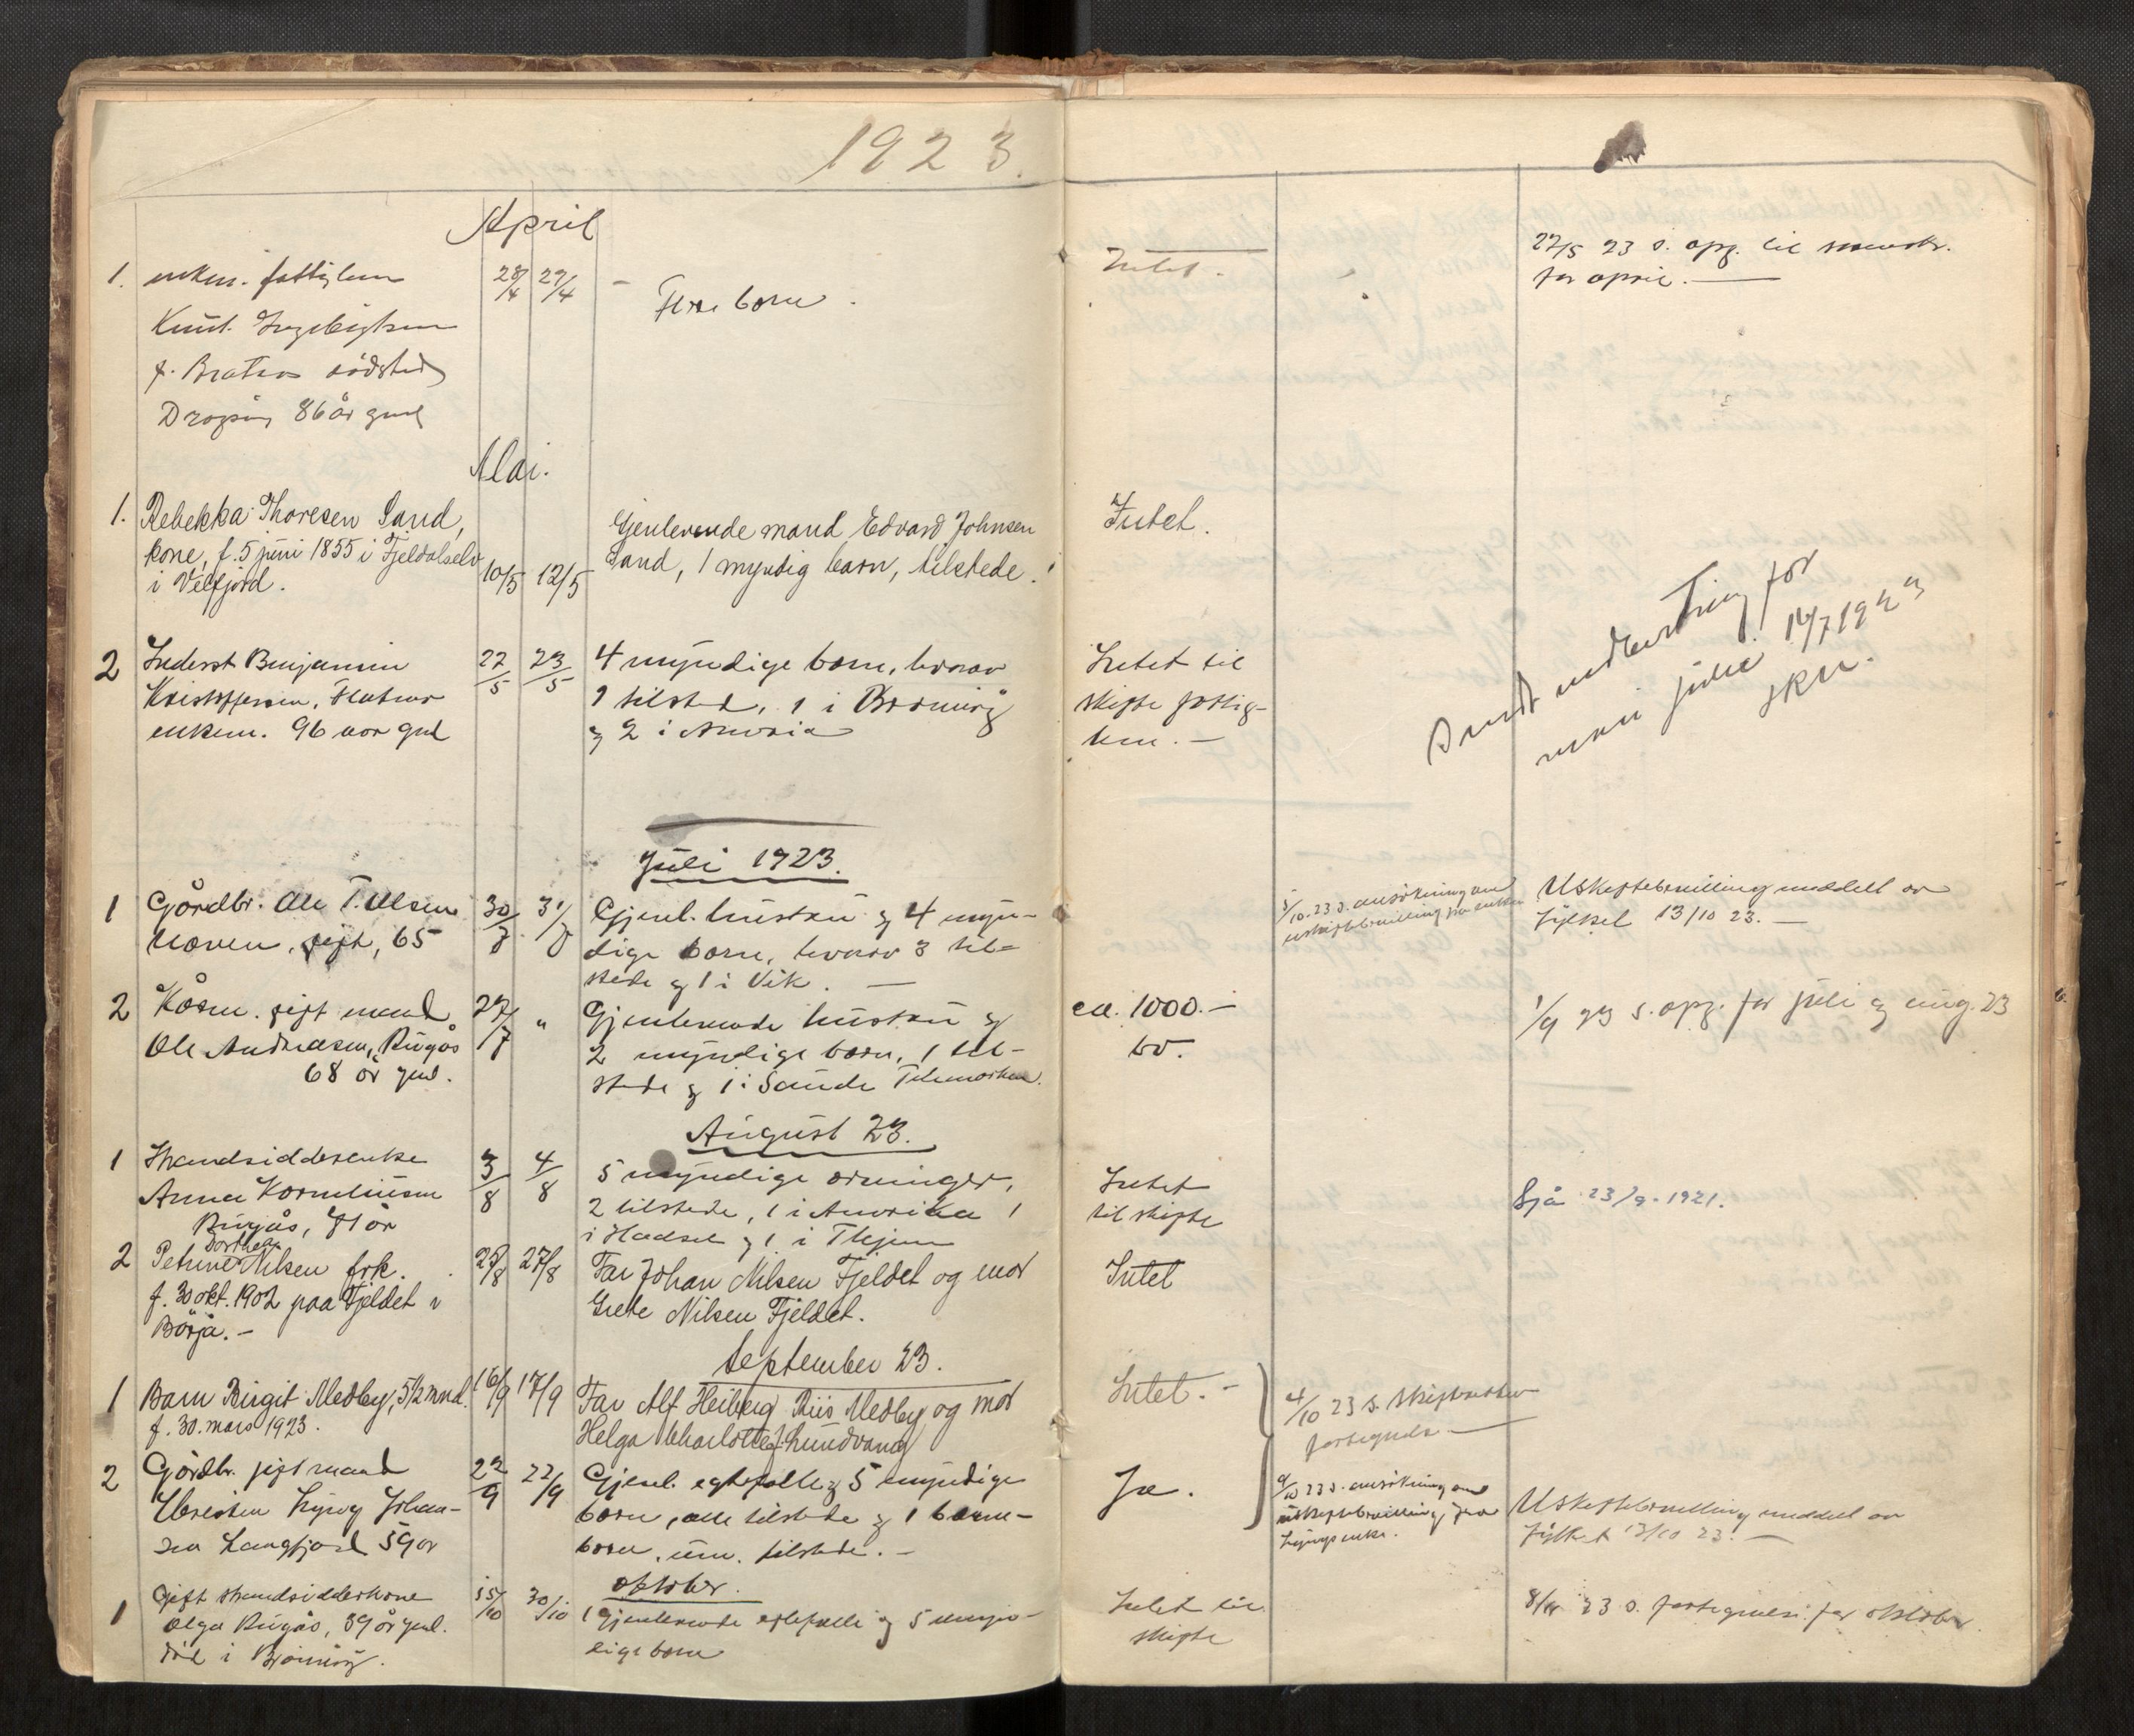 1923.
April
1. enkem. fattiglem
28/4 27/4 -
Flere born.
Intet.
27/5 23 s. opg. til
for april.
86 år gml
Mai.
1. Rebekka Thoresen Sand,
kone, f. 5 juni 1855 i Fjeldalselv
i Velfjord.
10/5 12/5
Gjenlevende mand Edvard Johnsen
Sand, 1 myndig barn, tilstede.
Intet.
2 Inderst Benjamin
Kristoffersen,
enkem. 96 aar gml
22/5 23/5
4 myndige born, hvorav
1 tilsted, 1 i Brønnøy
og 2 i Amerika
Intet til
skifte fattig-
lem. -
Sendt indberetning for
mai juni 14/7 1923
Juli 1923.
1 Gårdbr. Ole T. Olsen
gift, 65
Gjenl. hustru og 4 myn-
dige born, hvorav 3 til-
stede og 1 i Vik. -
5/10. 23 s. ansökning om
uskiftebevilling fra enken
Uskiftebevilling meddelt av
fylket 13/10 23. -
2 gift mand
Ole Andreasen, Bugås
68 år gml.
27/7 "
Gjenlevende hustru og
2 myndige born, 1 til-
stede og 1 i Sande Telemarken.
ca. 1000.-
1/9 23 s. opg. for juli og aug. 23
August 23.
1 Strandsidderenke
Anna Korneliusen
Bugås, 71 år
3/8 4/8
5 myndige arvinger,
2 tilstede, 1 i Amerika 1
i Hadsel og 1 i Thjem
Intet
til skifte
Sjå 23/9. 1921.
2 Petrine Dorthea Nilsen frk.
f. 30 okt. 1902 paa Fjeldet i
Börja. -
25/8 27/8
Far Johan Nilsen Fjeldet og mor
Grete Nilsen Fjeldet.
Intet
September 23.
1 Barn Birgit Medby, 5½ mnd.
f. 30. mars 1923.
16/9 17/9
Far Alf Heiberg Riis Medby og mor
Helga Charlotte f. Lundvang
Intet. -
4/10 23 s. skifteretten
fortegnelse -
2 Gårdbr. gift mand
Kristen Lyng Johan-
sen Langfjord 59 år
22/9 22/9
Gjenl. egtefelle og 5 myndige
born, alle tilstede og 1 barne-
barn, um. tilstede. -
Ja.
9/10 23 s. ansökning om
uskiftebevilling fra
Lyngs enke.
Uskiftebevilling meddelt av
fylket 13/10 23. -
oktober.
1 Gift strandsidderkone
Olga Bugås, 39 år gml.
död i Brönnöy.
15/10 30/10
1 gjenlevende egtefelle og 5 umyn-
dige born
Intet til
skifte
8/11 23 s. fortegnelse for oktober.